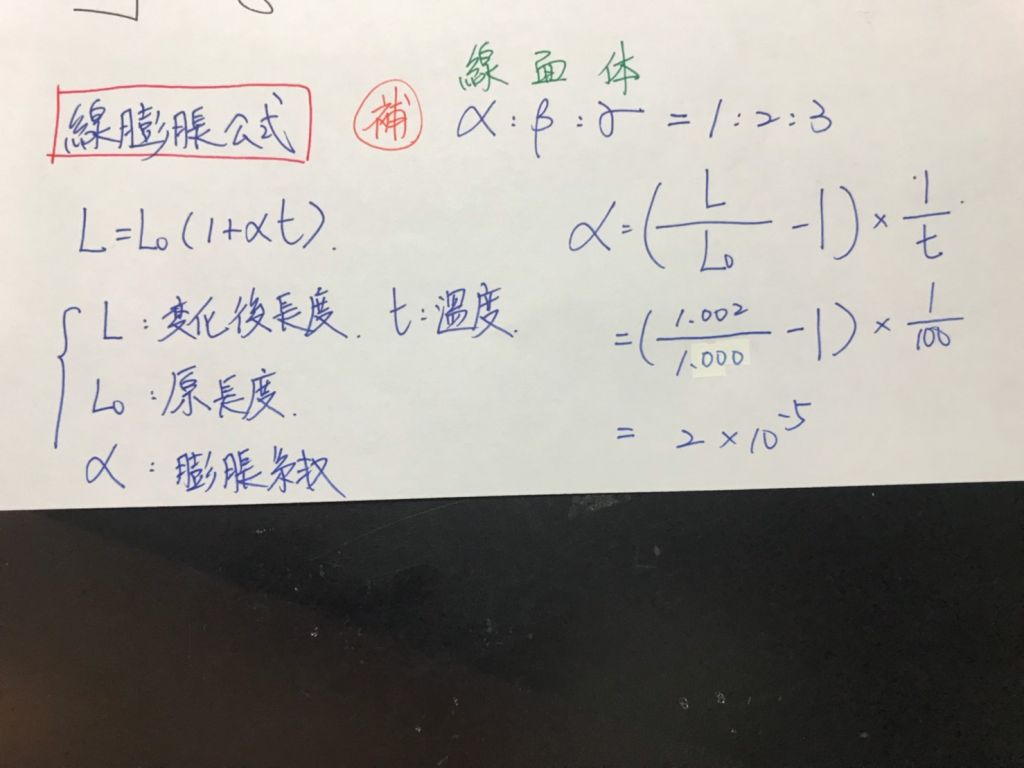 線膨脹公式
補
線 面 体
α:β:γ = 1:2:3
L=L₀(1+αt).
L:变化後長度. t:溫度.
L₀:原長度.
α:膨脹係数
α=(L/L₀ -1)×1/t
=(1.002/1.000 -1)×1/100
= 2×10⁻⁵